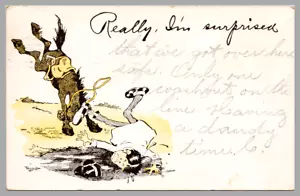 Really, I'm surprised
that we got over here
safe. Only one
on the
line. Having
a dandy
time.